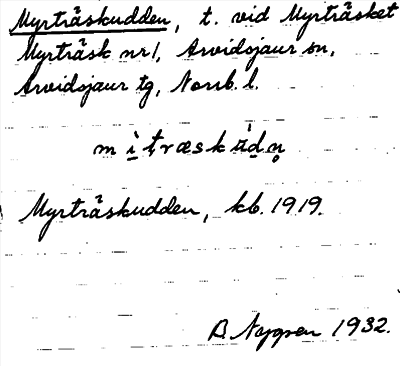 Myrträskudden, t. vid Myrträsket
Myrträsk nr1, Arvidsjaur sn,
Arvidsjaur tg, Norrb. l.
Myrträskudden, kb. 1919.
B. Nygren 1932.